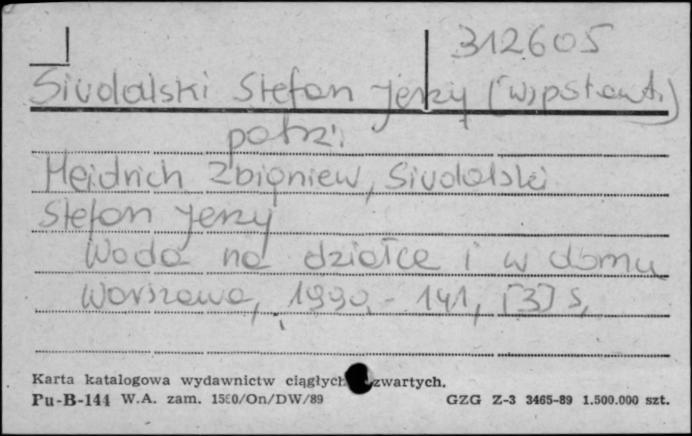 312605
Siudalski Stefan Jerzy (współaut.)
patrz:
Heidrich Zbigniew, Siudalski
Stefan Jerzy
Woda na działce i w domu
Warszawa, 1990.- 141, [3] s,
Karta katalogowa wydawnictw ciągłych zwartych.
Pu-B-144 W.A. zam. 1580/On/DW/89 GZG Z-3 3465-89 1.500.000 szt.